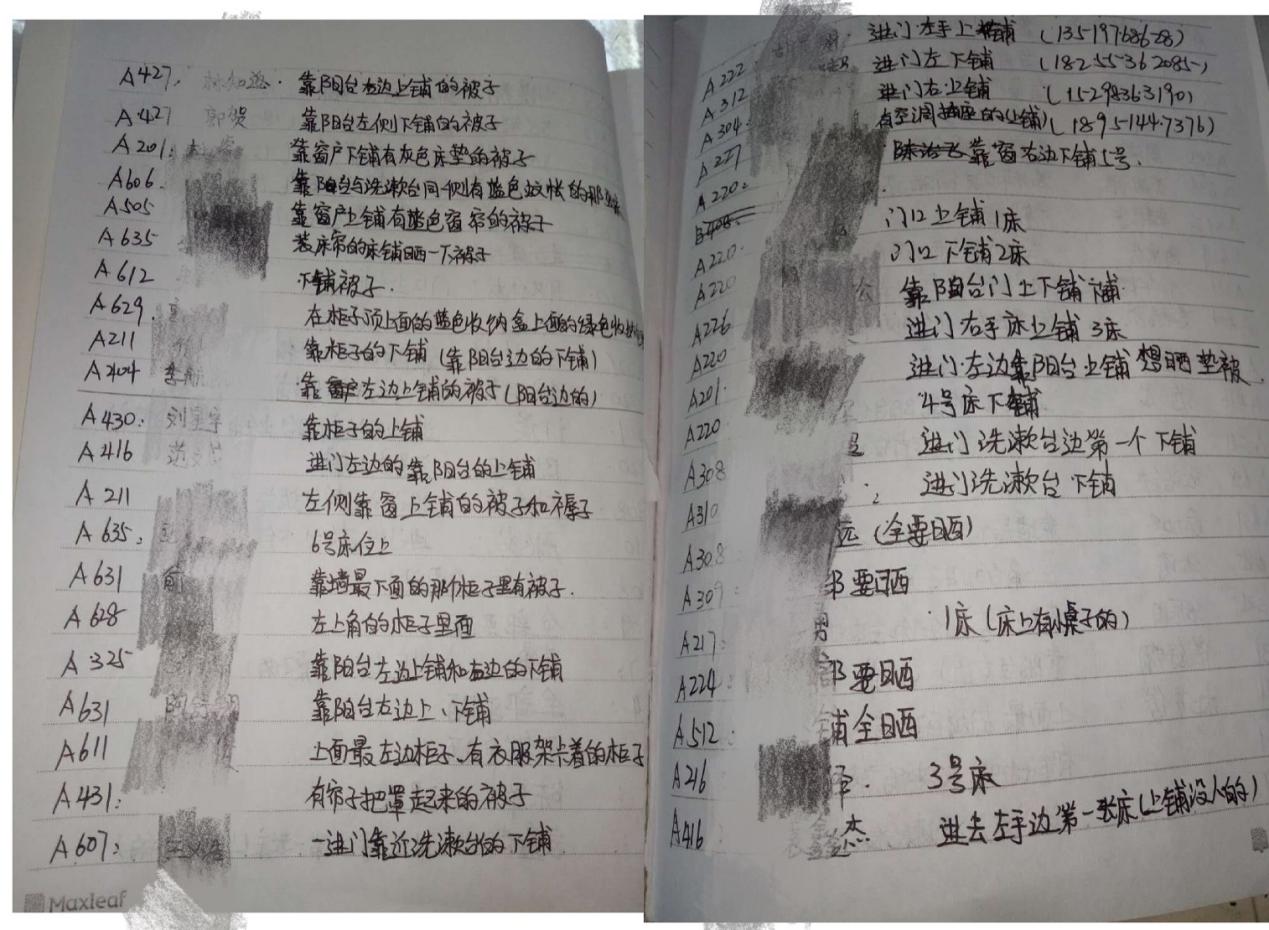 A427. 靠阳台右边上铺的被子
A427 郭贺 靠阳台左侧下铺的被子
A201: 靠窗户下铺有灰色床垫的被子
A606. 靠阳台与洗漱台同一侧有蓝色蚊帐的那
A505 靠窗户上铺有蓝色窗帘的被子
A635 装床帘的床铺晒一下被子
A612 下铺被子.
A629. 在柜子顶上面的蓝色收纳盒上面的绿色收
A211 靠柜子的下铺(靠阳台边的下铺)
A404 李 靠窗户左边上铺的被子(阳台边的)
A430: 刘宇 靠柜子的上铺
A416 进门左边的靠阳台的上铺
A211 左侧靠窗上铺的被子和褥子
A635: 6号床位上
A631 俞 靠墙最下面的那个柜子里有被子.
A628 左上角的柜子里面
A325 靠阳台左边上铺和右边的下铺
A631 靠阳台左边上、下铺
A611 上面最左边柜子、有衣服架卡着的柜子
A431: 有帘子把罩起来的被子
A607: 一进门靠近洗漱台的下铺
Maxleaf
A222 进门左手上铺 (13519768628)
A312 进门左下铺 (18255362085)
A304: 进门右上铺 (15298363190)
A227 有空调插座的(上铺)(18951447376)
A220: 靠窗右边下铺5号.
B408.
A220. 门口上铺1床
A220 门口下铺2床
A226 靠阳台门上下铺
A220 进门右手床上铺3床
A201. 进门左边靠阳台上铺想晒垫被
A220 4号床下铺
A308 进门洗漱台边第一个下铺
A310 进门洗漱台下铺
A308 远(全要晒)
A309: 部要晒
A217: 男 1床(床上有小桌子的)
A224: 部要晒
A512: 铺全晒
A216 泽. 3号床
A416: 杰 进去左手边第一张床(上铺没人的)